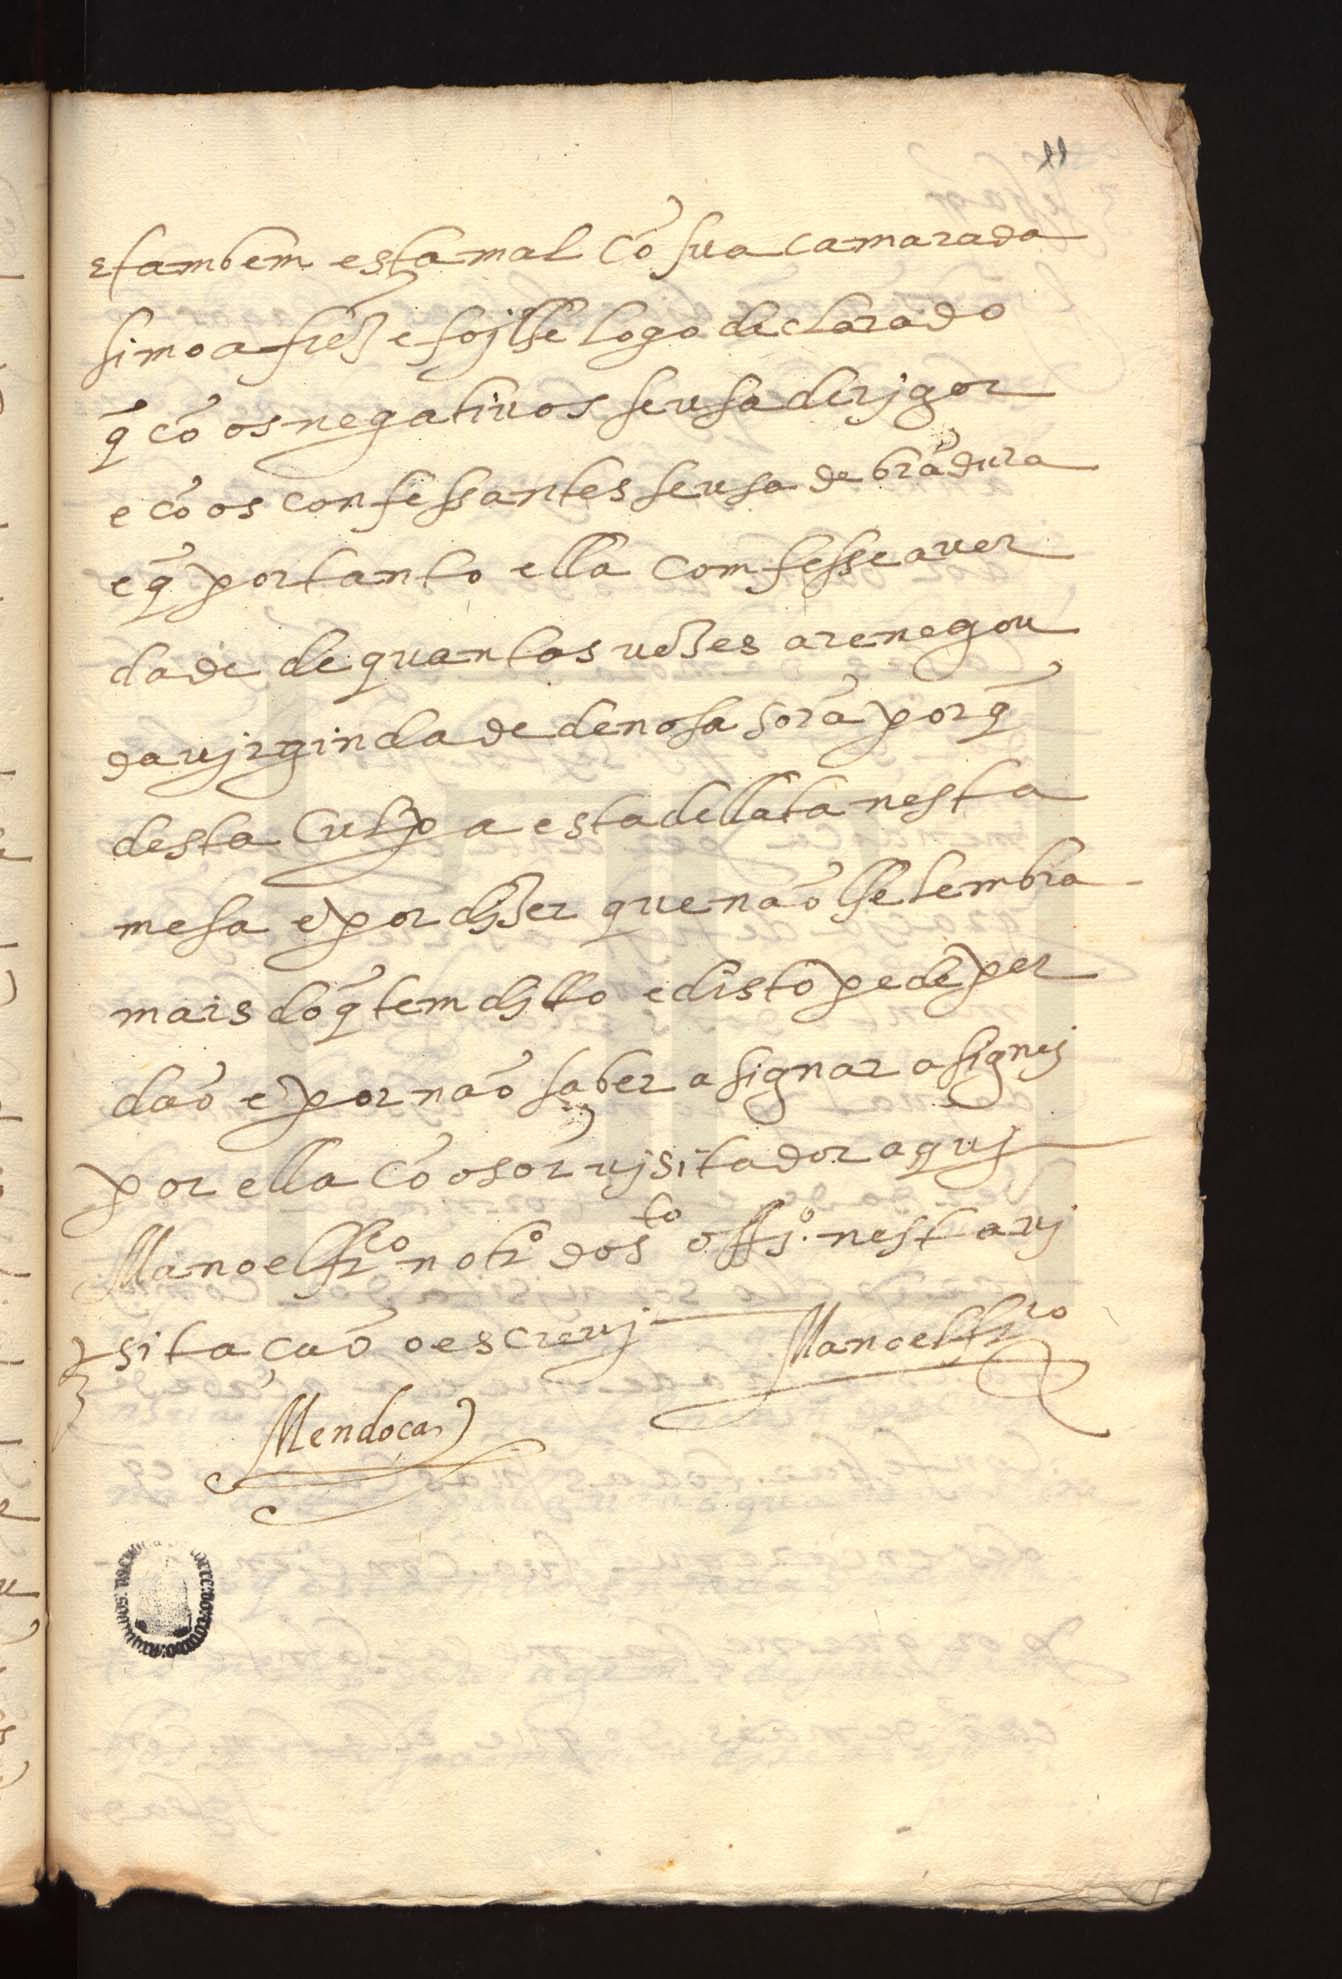 11
e tambem esta mal cõ sua camarada
simoa frz e foj lhe logo declarado
q̃ cõ os negatiuos se usa de rjgor
e cõ os confessantes se usa de brãdura
e q̃ portanto ella comfesse a ver
dade de quantas uezes arenegou
da ujrgindade de nosa sõra porq̃
desta culpa esta dellata nesta
mesa e por djzer que não lhe lembra
mais do q̃ tem djtto e disto pede per
dão e por não saber asignar asignej
por ella cõ o sõr ujsitador aquj
Manoel frco notro do sto offjo nesta uj
sitação o escreuj
Manoel frco
Mendoça